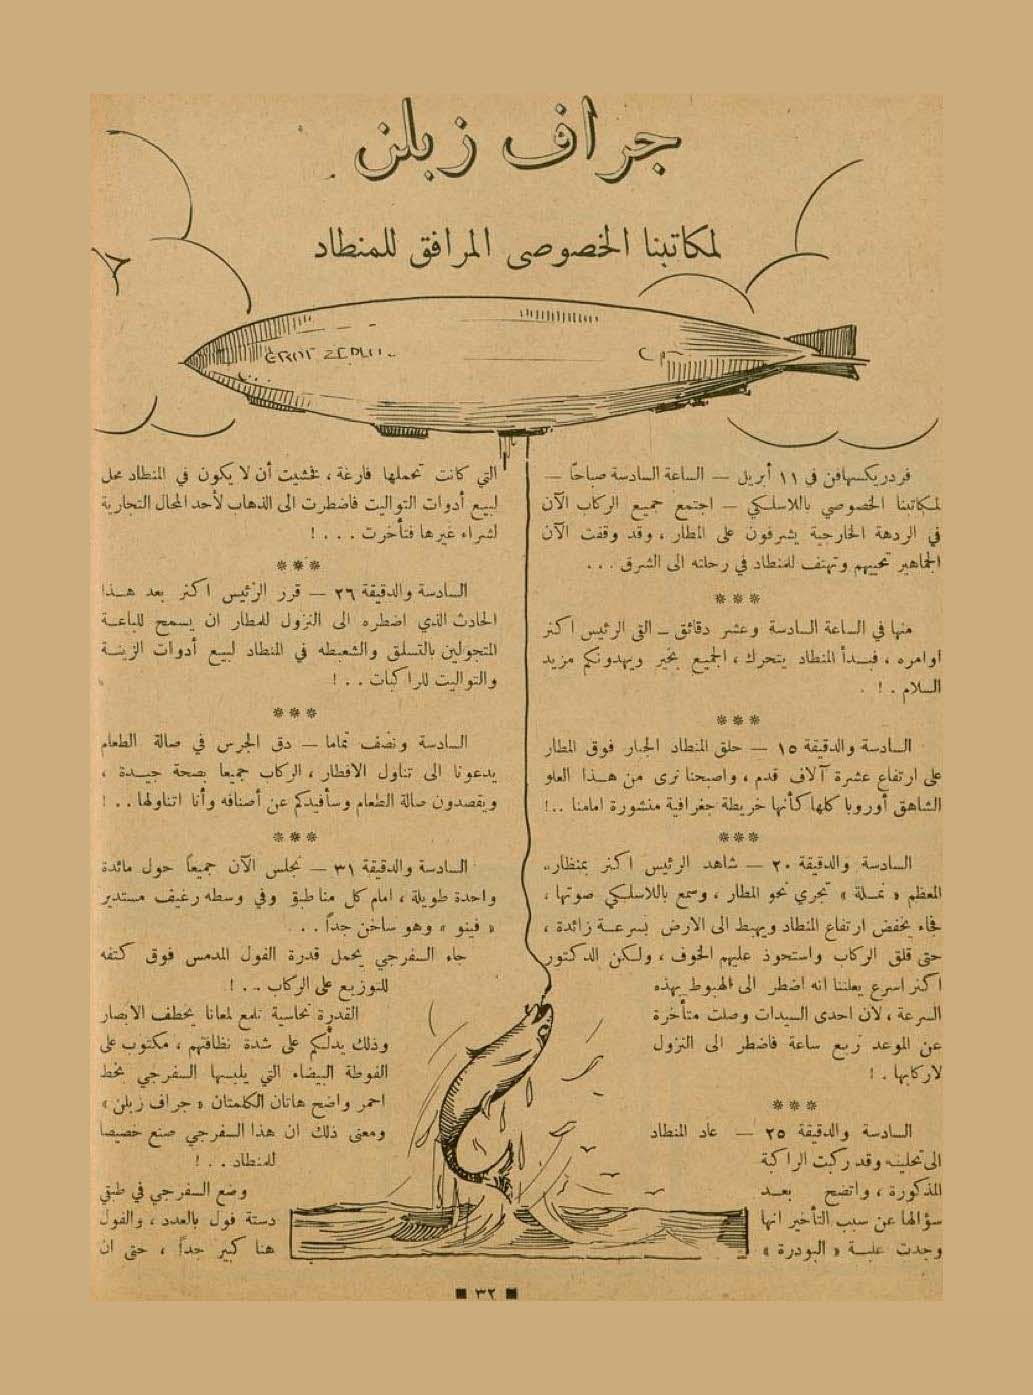 جراف زبلن
لمكاتبنا الخصوصى المرافق للمنطاد
فردريكسهافن في ١١ أبريل — الساعة السادسة صباحاً —
لمكاتبنا الخصوصي باللاسلكي — اجتمع جميع الركاب الآن
في الردهة الخارجية يشرفون على المطار ، وقد وقفت الآن
الجماهير تحييهم وتهتف للمنطاد في رحلته الى الشرق . . .
***
منها في الساعة السادسة وعشر دقائق — القى الرئيس اكنر
اوامره ، فبدأ المنطاد يتحرك ، الجميع بخير ويهدونكم مزيد
السلام . ! .
***
السادسة والدقيقة ١٥ — حلق المنطاد الجبار فوق المطار
على ارتفاع عشرة آلاف قدم ، واصبحنا نرى من هذا العلو
الشاهق أوروبا كلها كأنها خريطة جغرافية منشورة امامنا ..!
***
السادسة والدقيقة ٢٠ — شاهد الرئيس اكنر بمنظاره
المعظم « نملة » تجري نحو المطار ، وسمع باللاسلكي صوتها ،
فجاء يخفض ارتفاع المنطاد ويهبط الى الارض بسرعة زائدة ،
حتى قلق الركاب واستحوذ عليهم الخوف ، ولكن الدكتور
اكنر اسرع يعلننا انه اضطر الى الهبوط بهذه
السرعة ، لان احدى السيدات وصلت متأخرة
عن الموعد ربع ساعة فاضطر الى النزول
لاركابها . !
***
السادسة والدقيقة ٢٥ — عاد المنطاد
الى تحليقه وقد ركبت الراكبة
المذكورة ، واتضح بعد
سؤالها عن سبب التأخير انها
وجدت علبة « البودرة »
التي كانت تحملها فارغة ، فخشيت أن لا يكون في المنطاد محل
لبيع أدوات التواليت فاضطرت الى الذهاب لأحد المحال التجارية
لشراء غيرها فتأخرت . . . !
***
السادسة والدقيقة ٢٦ — قرر الرئيس اكنر بعد هذا
الحادث الذي اضطره الى النزول للمطار ان يسمح للباعة
المتجولين بالتسلق والشعبطه في المنطاد لبيع أدوات الزينة
والتواليت للراكبات . . !
***
السادسة ونصف تماما — دق الجرس في صالة الطعام
يدعونا الى تناول الافطار ، الركاب جميعا بصحة جيدة ،
ويقصدون صالة الطعام وسأفيدكم عن أصنافه وأنا اتناولها . . !
***
السادسة والدقيقة ٣١ — نجلس الآن جميعاً حول مائدة
واحدة طويلة ، امام كل منا طبق وفي وسطه رغيف مستدير
« فينو » وهو ساخن جداً . . .
جاء السفرجي يحمل قدرة الفول المدمس فوق كتفه
للتوزيع على الركاب . . !
القدرة نحاسية تلمع لمعانا يخطف الابصار
وذلك يدلكم على شدة نظافتهم ، مكتوب على
الفوطة البيضاء التي يلبسها السفرجي بخط
احمر واضح هاتان الكلمتان « جراف زبلن »
ومعنى ذلك ان هذا السفرجي صنع خصيصا
للمنطاد . . !
وضع السفرجي في طبقي
دستة فول بالعدد ، والفول
هنا كبير جداً ، حتى ان
٣٢